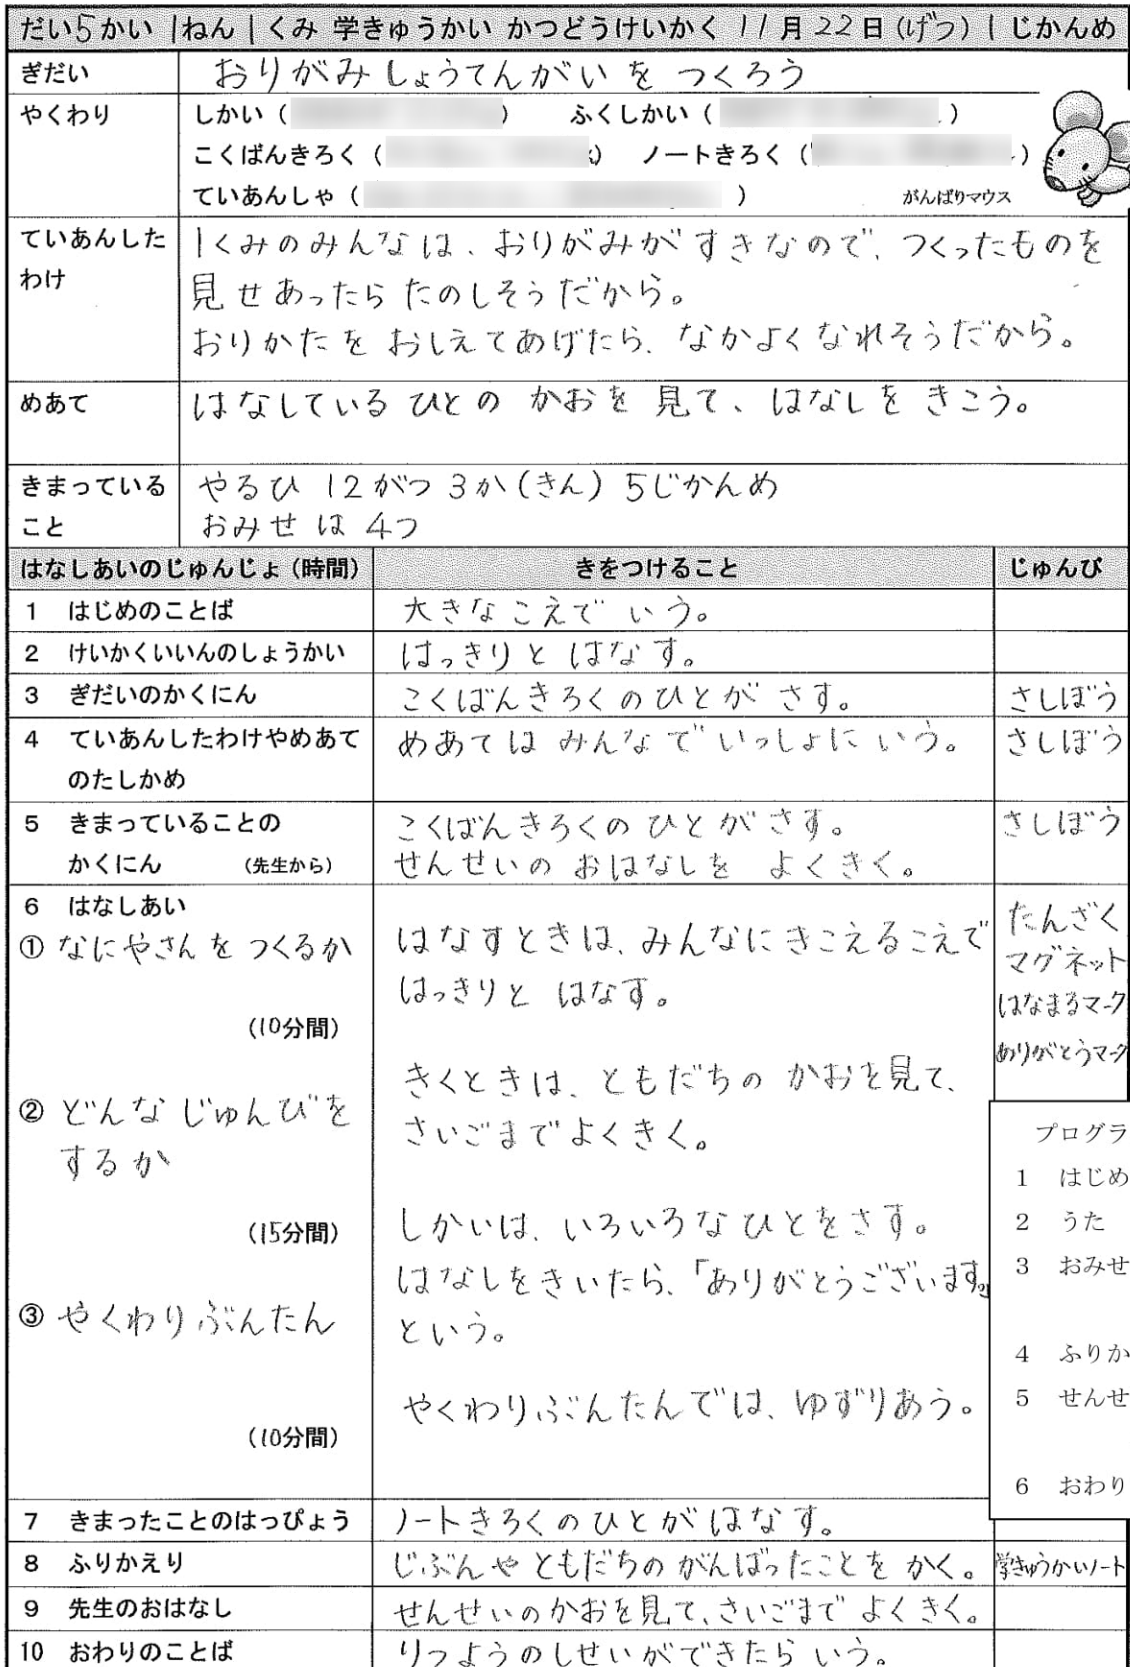 だい5かい 1ねん1くみ 学きゅうかい かつどうけいかく 11月22日(げつ)1じかんめ
ぎだい おりがみしょうてんがいを つくろう
やくわり しかい( ) ふくしかい( )
こくばんきろく( ) ノートきろく( )
ていあんしゃ( ) がんばりマウス
ていあんした
わけ
1くみのみんなは、おりがみがすきなので、つくったものを
見せあったらたのしそうだから。
おりかたを おしえてあげたら、なかよくなれそうだから。
めあて はなしているひとの かおを見て、はなしをきこう。
きまっている
こと
やるひ 12がつ3か(きん)5じかんめ
おみせは4つ
はなしあいのじゅんじょ(時間) きをつけること じゅんび
1 はじめのことば 大きなこえで いう。
2 けいかくいいんのしょうかい はっきりと はなす。
3 ぎだいのかくにん こくばんきろくのひとが さす。 さしぼう
4 ていあんしたわけやめあて
のたしかめ
めあては みんなでいっしょに いう。 さしぼう
5 きまっていることの
かくにん (先生から)
こくばんきろくの ひとがさす。
せんせいの おはなしを よくきく。
さしぼう
6 はなしあい
① なにやさんを つくるか
(10分間)
② どんな じゅんびを
するか
(15分間)
③ やくわりぶんたん
(10分間)
はなすときは、みんなにきこえるこえで
はっきりと はなす。
きくときは、ともだちの かおを見て、
さいごまでよくきく。
しかいは、いろいろなひとをさす。
はなしをきいたら、「ありがとうございます。」
という。
やくわりぶんたんでは、ゆずりあう。
たんざく
マグネット
はなまるマーク
ありがとうマーク
プログラ
1 はじめ
2 うた
3 おみせ
4 ふりか
5 せんせ
6 おわり
7 きまったことのはっぴょう ノートきろくのひとが はなす。
8 ふりかえり じぶんやともだちの がんばったことを かく。 学きゅうかいノート
9 先生のおはなし せんせいのかおを見て、さいごまで よくきく。
10 おわりのことば りつようのしせいができたら いう。